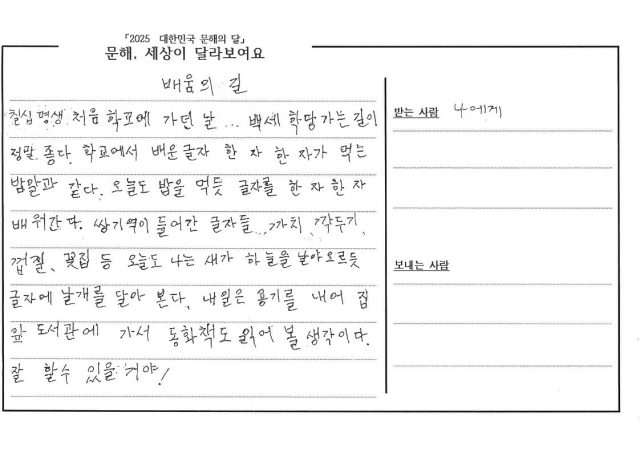 「2025 대한민국 문해의 달」
문해, 세상이 달라보여요
배움의 길
칠십 평생 처음 학교에 가던 날 ... 백세 학당 가는 길이
정말 좋다. 학교에서 배운 글자 한 자 한 자가 먹는
밥알과 같다. 오늘도 밥을 먹듯 글자를 한 자 한 자
배워간다. 쌍기역이 들어간 글자들... 까치, 깍두기,
껍질, 꽃집 등 오늘도 나는 새가 하늘을 날아오르듯
글자에 날개를 달아 본다. 내일은 용기를 내어 집
앞 도서관에 가서 동화책도 읽어 볼 생각이다.
잘 할수 있을 거야!
받는 사람 나에게
보내는 사람